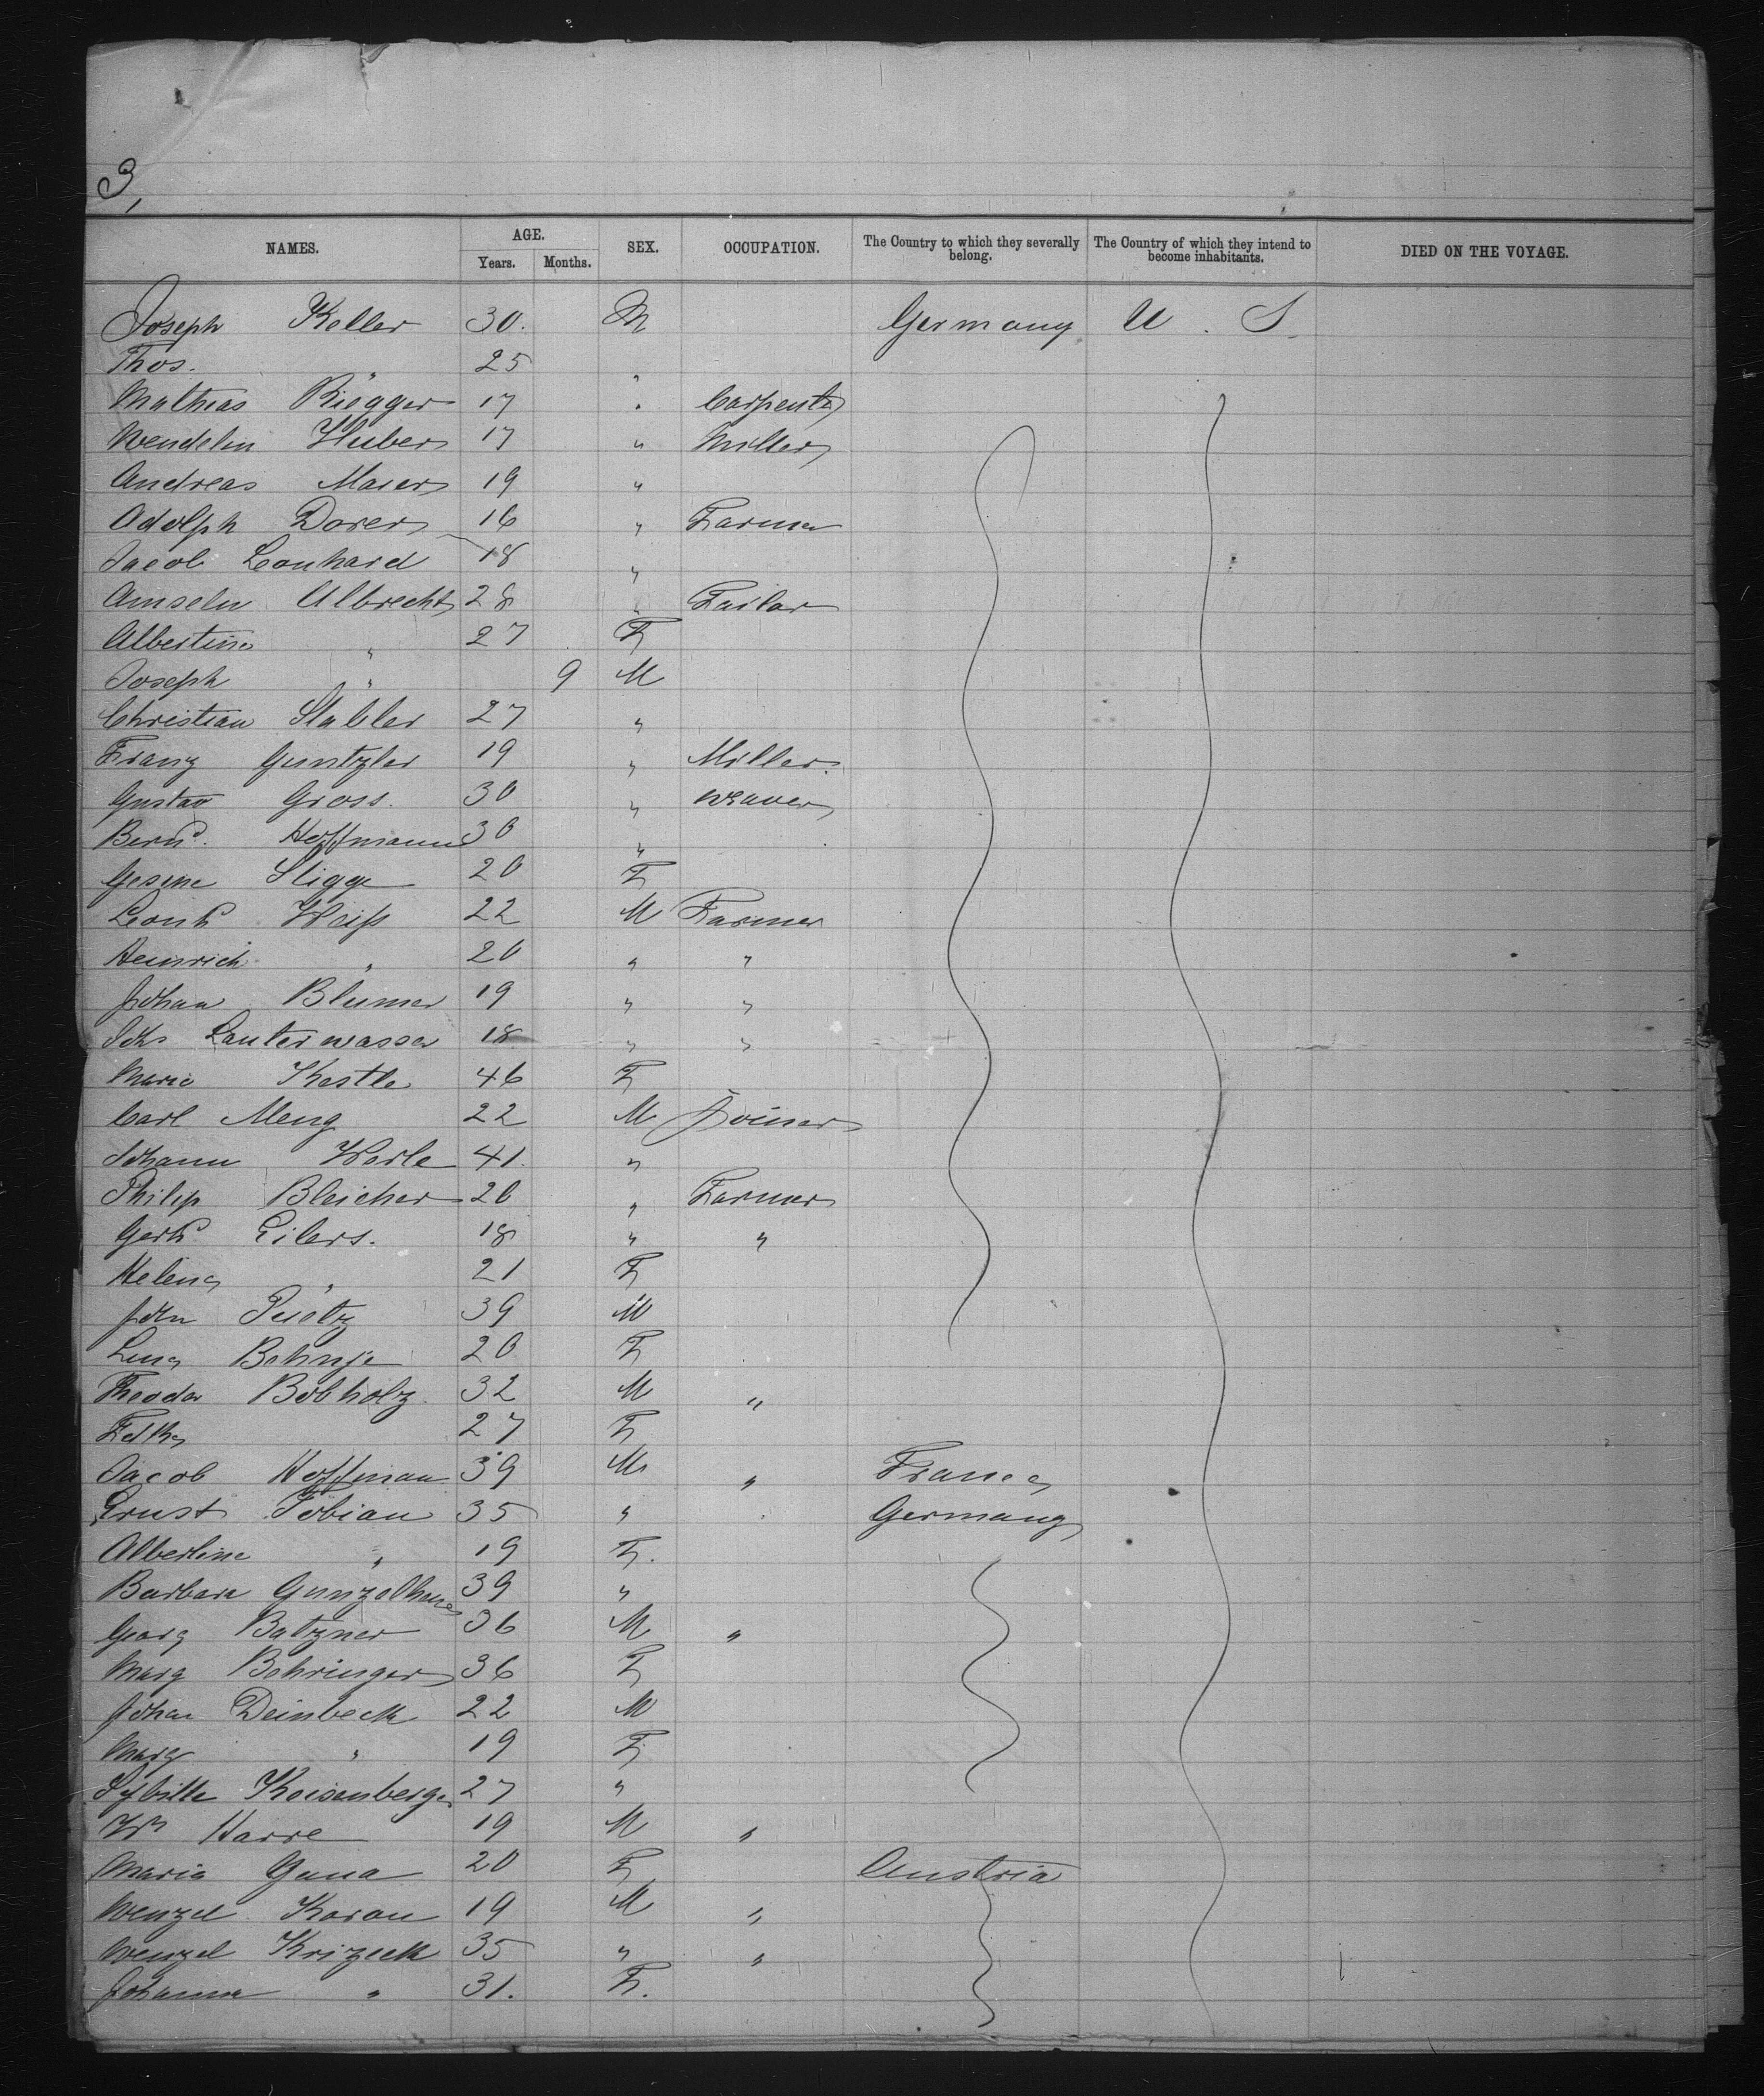 3,
NAMES. AGE. SEX. OCCUPATION. The Country to which they severally belong. The Country of which they intend to become inhabitants. DIED ON THE VOYAGE.
Years. Months.
Joseph Keller 30. M Germany U. S.
Thos. " 25 "
Mathias Riegger 17 " Carpenter
Wendelin Huber 17 " Miller
Andreas Maier 19 "
Adolph Dorer 16 " Farmer
Jacob Leonhard 18 "
Amseln Albrecht 28 " Tailor
Albertine " 27 F
Joseph " 9 M
Christian Stabler 27 "
Franz Guntzler 19 " Miller.
Gustav Gross. 30 " Weaver
Bernd. Hoffmann 30 "
Gesine Stigge 20 F
Leonh Weiss 22 M Farmer
Heinrich " 20 " "
Johan Blumer 19 " "
Johs Lauterwasser 18 " "
Maria Kestle 46 F
Carl Meng 22 M Joiner
Johann Werle 41. "
Philip Bleicher 20 " Farmer
Gerh Eilers. 18 " "
Helena " 21 F
John Puetz 39 M
Lena Behnje 20 F
Theodor Bobholz. 32 M "
27 F
Jacob Hoffman 39 M " France
Ernst Tobian 35 " Germany
Albertine " 19 F.
Barbara 39 "
Georg Batzner 36 M "
Marg Behringer 36 F
Johan Deinbeck 22 M
Marg " 19 F
Sybilla Koisenberger 27 "
Wm Harre 19 M "
Maria Guna 20 F Austria
Wenzel Karau 19 M "
Wenzel Krizeck 35 " "
Johanna " 31. F.